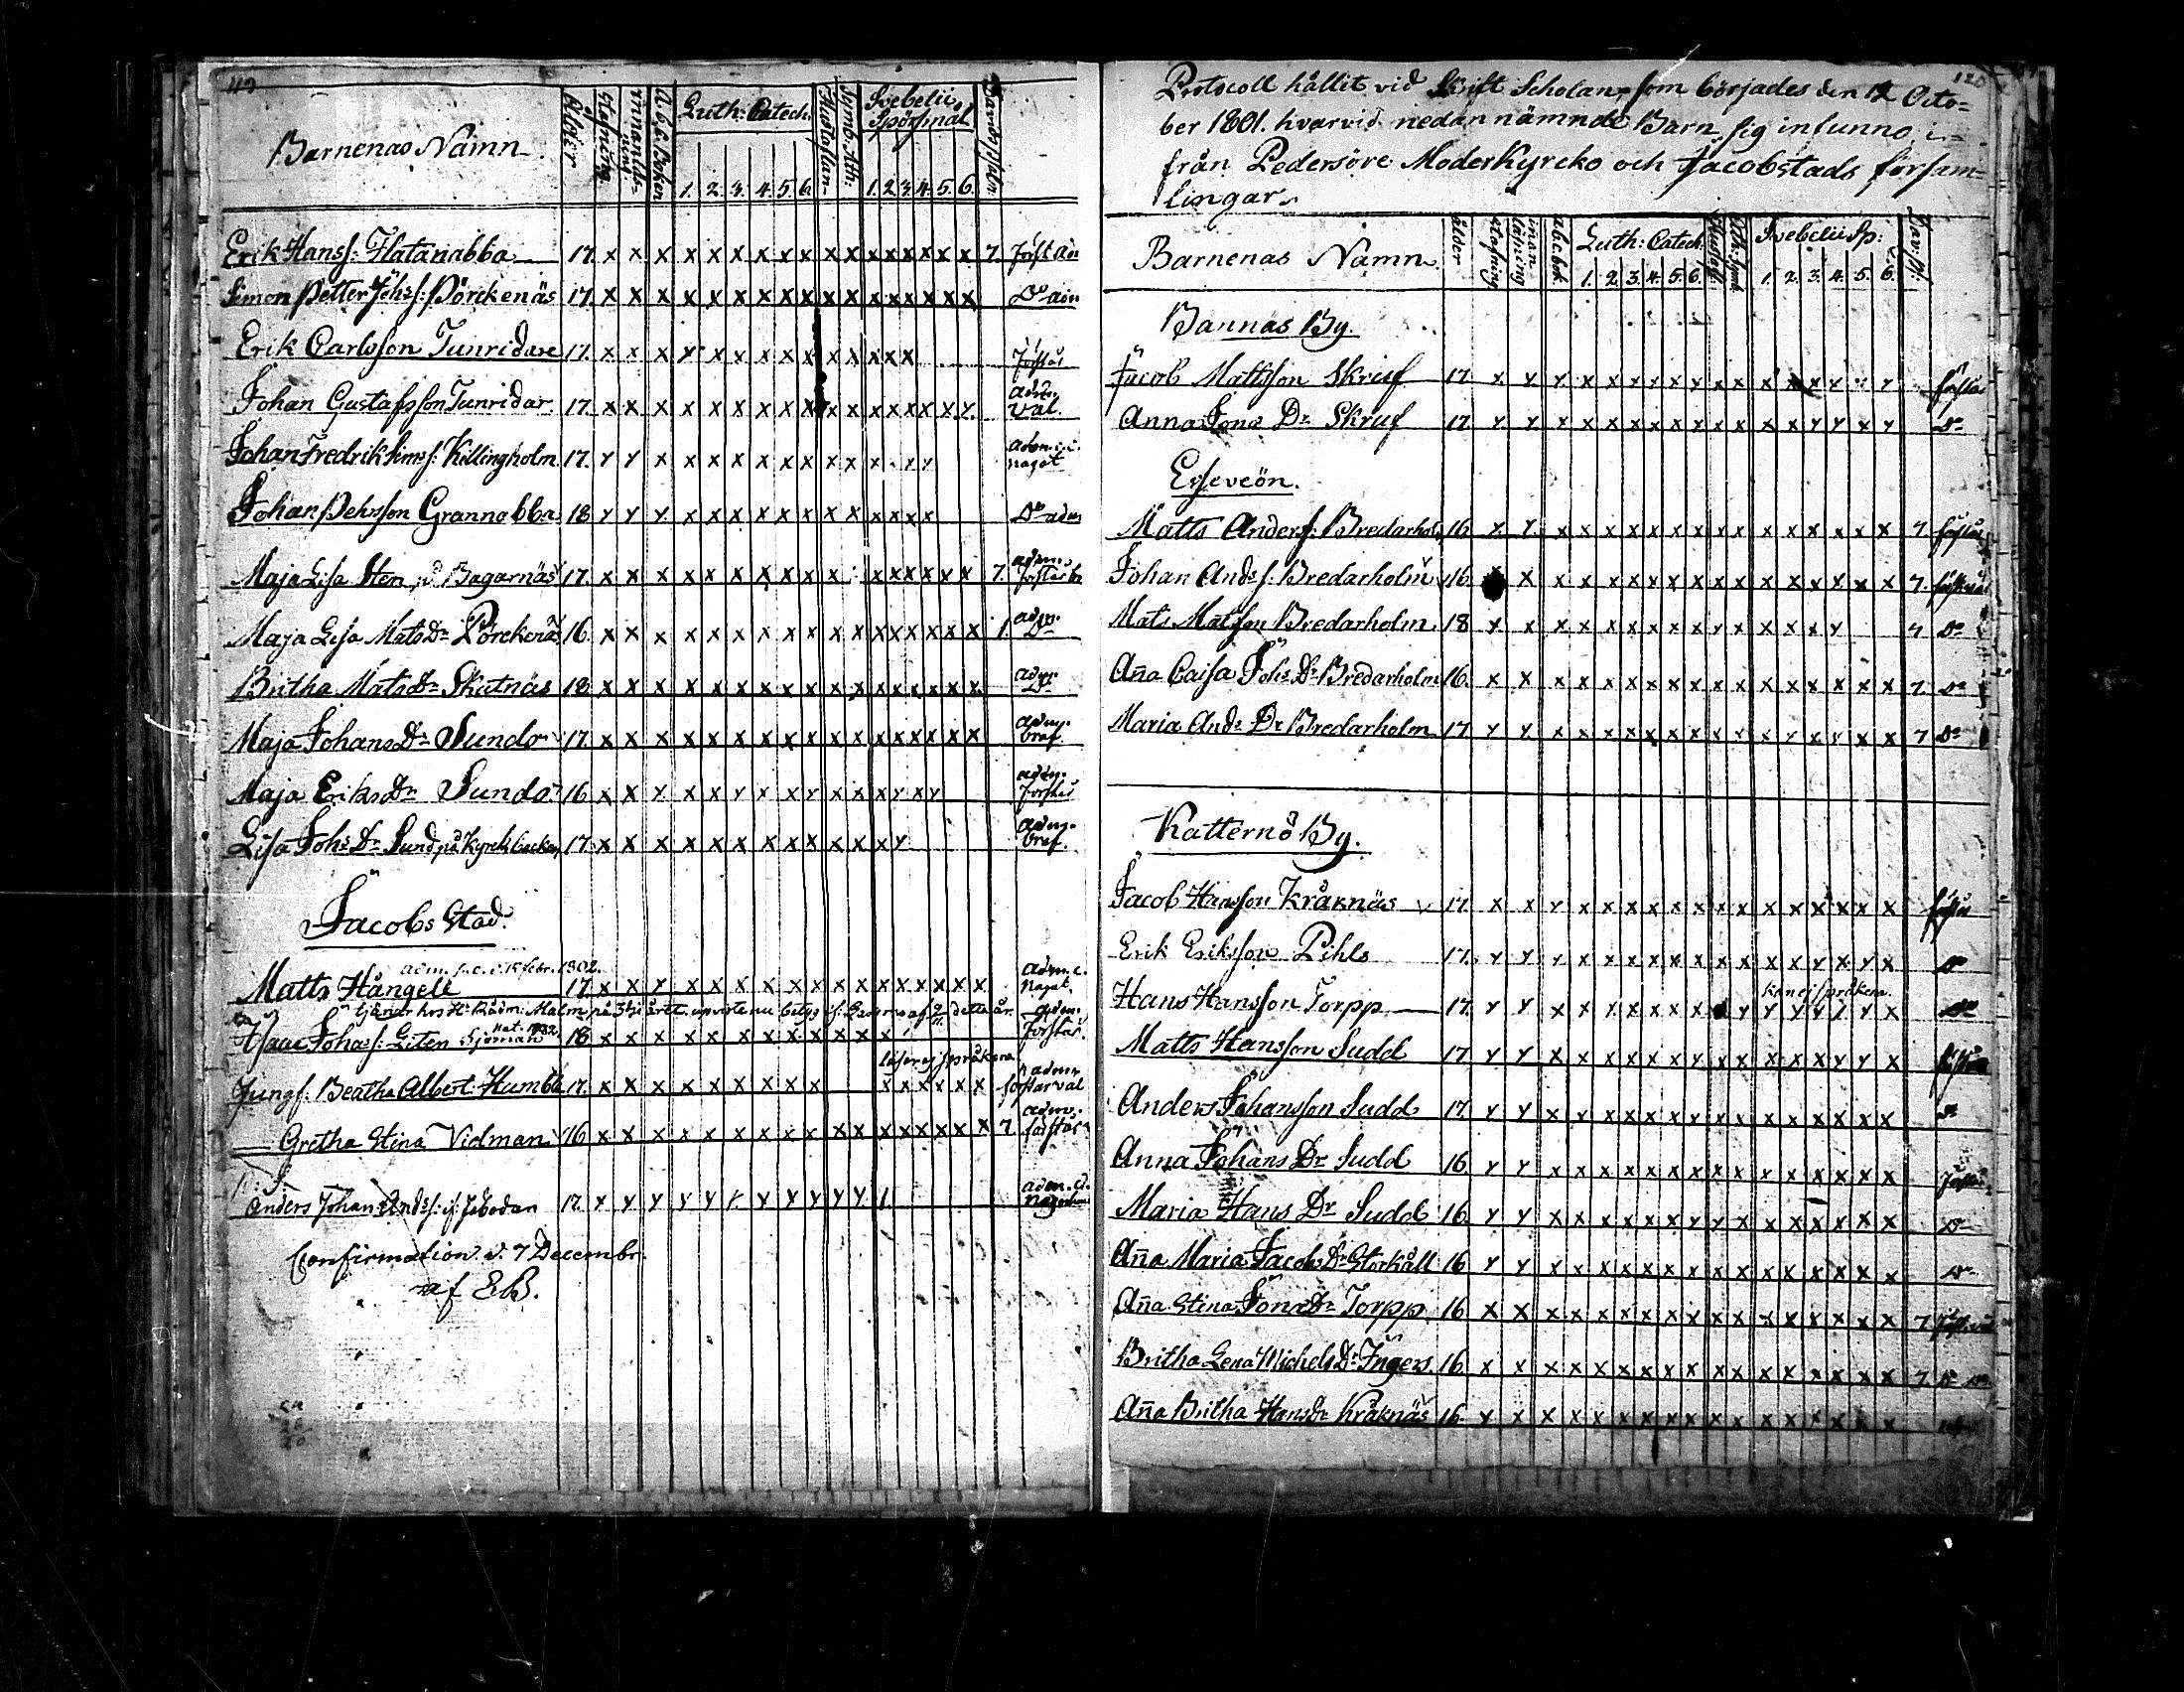 119
Barnenas Namn.
Ålder
Stafning
innanläs=
ning
A.b.c. Boken
Luth: Catech:
1. 2. 3. 4. 5. 6.
Hustaflan
Symb. Ath:
Svebelii
Spörsmål
1. 2. 3. 4. 5. 6.
Davids psalm
Erik Hanss: Flatanabba 17. x x x x x x x x x x x x x x x x x 7.
Simon Petter Johs s: Pörckenäs 17. x x x x x x x x x x x x x x x x x Do
Erik Carlsson Tunridare 17. x x x x x x x x x x x x x x förstår
Johan Gustafsson Tunridar 17. x x x x x x x x x x x x x x x x x adm. väl.
Johan Fredrik Sims s: Killingholm 17. x x x x x x x x x x x x x x adm. något
Johan Pehrsson Grannabba 18 x x x x x x x x x x x x x x x Do adm
Maja Lisa Sten Bagarnäs 17. x x x x x x x x x x x x x x x x 7. adm. förstår
Maja Lisa Mats Dr Pörckenäs 16. x x x x x x x x x x x x x x x x x 1. adm. Do
Britha Mats Dr Skutnäs 18 x x x x x x x x x x x x x x x x x adm. Do
Maja Johans Dr Sundo 17. x x x x x x x x x x x x x x x x x adm. braf.
Maja Eriks Dr Sundo 16 x x x x x x x x x x x x x x x adm. förstår
Lisa Johs Dr Sund på Kyrckbacken 17. x x x x x x x x x x x x x adm. braf.
Jacobs Stad.
adm. febr. 1802.
Matts Hångell 17. x x x x x x x x x x x x x x x x x adm. något.
tjänar hos H: Rådm: Malm på 3:dje året
Isaac Johans s: Liten Sjöman 18 x x x x x x x x x x x x adm. förstår.
läser ej språkena
Jungf: Beatha Albert. Humble 17. x x x x x x x x x x x x x x x adm. förstår väl
Gretha Stina Vidman 16 x x x x x x x x x x x x x x x x x 7 adm. förstår
Anders Johan Ands s: 17. x x x x x x x x x x x adm.
Confirmation d. 7 Decembr.
af E.B.
120
Protocoll hållit vid Skrift Scholan, som börjades den 12 Octo=
ber 1801. hvarvid nedannämnde Barn sig infunno i=
från Pedersöre Moderkyrcko och Jacobstads försam=
lingar.
Barnenas Namn.
ålder
stafning
inan
läsning
a.b.c. bok
Luth: Catech.
1. 2. 3. 4. 5. 6.
Hustafl:
Ath: Symb.
Svebelii Sp:
1. 2. 3. 4. 5. 6.
Dav: Ps:
Bannäs By.
Jacob Mattsson Skruf 17 x x x x x x x x x x x x x x x x x förstår
Anna Jons Dr Skruf 17. x x x x x x x x x x x x x x x x x Do
Esseveön.
Matts Anderss: Bredarholm 16. x x x x x x x x x x x x x x x x x 7. förstår
Johan Ands s: Bredarholm 16. x x x x x x x x x x x x x x x x x 7.
Mats Matsson Bredarholm 18 x x x x x x x x x x x x x x x 7 Do
Aña Caisa Johs Dr Bredarholm 16. x x x x x x x x x x x x x x x x x 7. Do
Maria Ands Dr Bredarholm 17 x x x x x x x x x x x x x x x x x 7 Do
Katternö By.
Jacob Hansson Kråknäs 17. x x x x x x x x x x x x x x x x x förstår
Erik Eriksson Pihls 17. x x x x x x x x x x x x x x x x x Do
kan ej språkena.
Hans Hansson Torpp 17. x x x x x x x x x x x x x x x x x Do
Matts Hansson Sudd 17 x x x x x x x x x x x x x x x x x förstår
Anders Johansson Sudd 17. x x x x x x x x x x x x x x x x x Do
Anna Johans Dr Sudd 16. x x x x x x x x x x x x x x x x x förstår
Maria Hans Dr Sudd 16. x x x x x x x x x x x x x x x x x Do
Aña Maria Jacobs Dr Storkåll 16 x x x x x x x x x x x x x x x x x Do
Aña Stina Jons Dr Torpp 16 x x x x x x x x x x x x x x x x x 7.
Britha Lena Michels Dr Ingers. 16. x x x x x x x x x x x x x x x x x 7. Do
Aña Britha Hans Dr Kråknäs 16. x x x x x x x x x x x x x x x x x